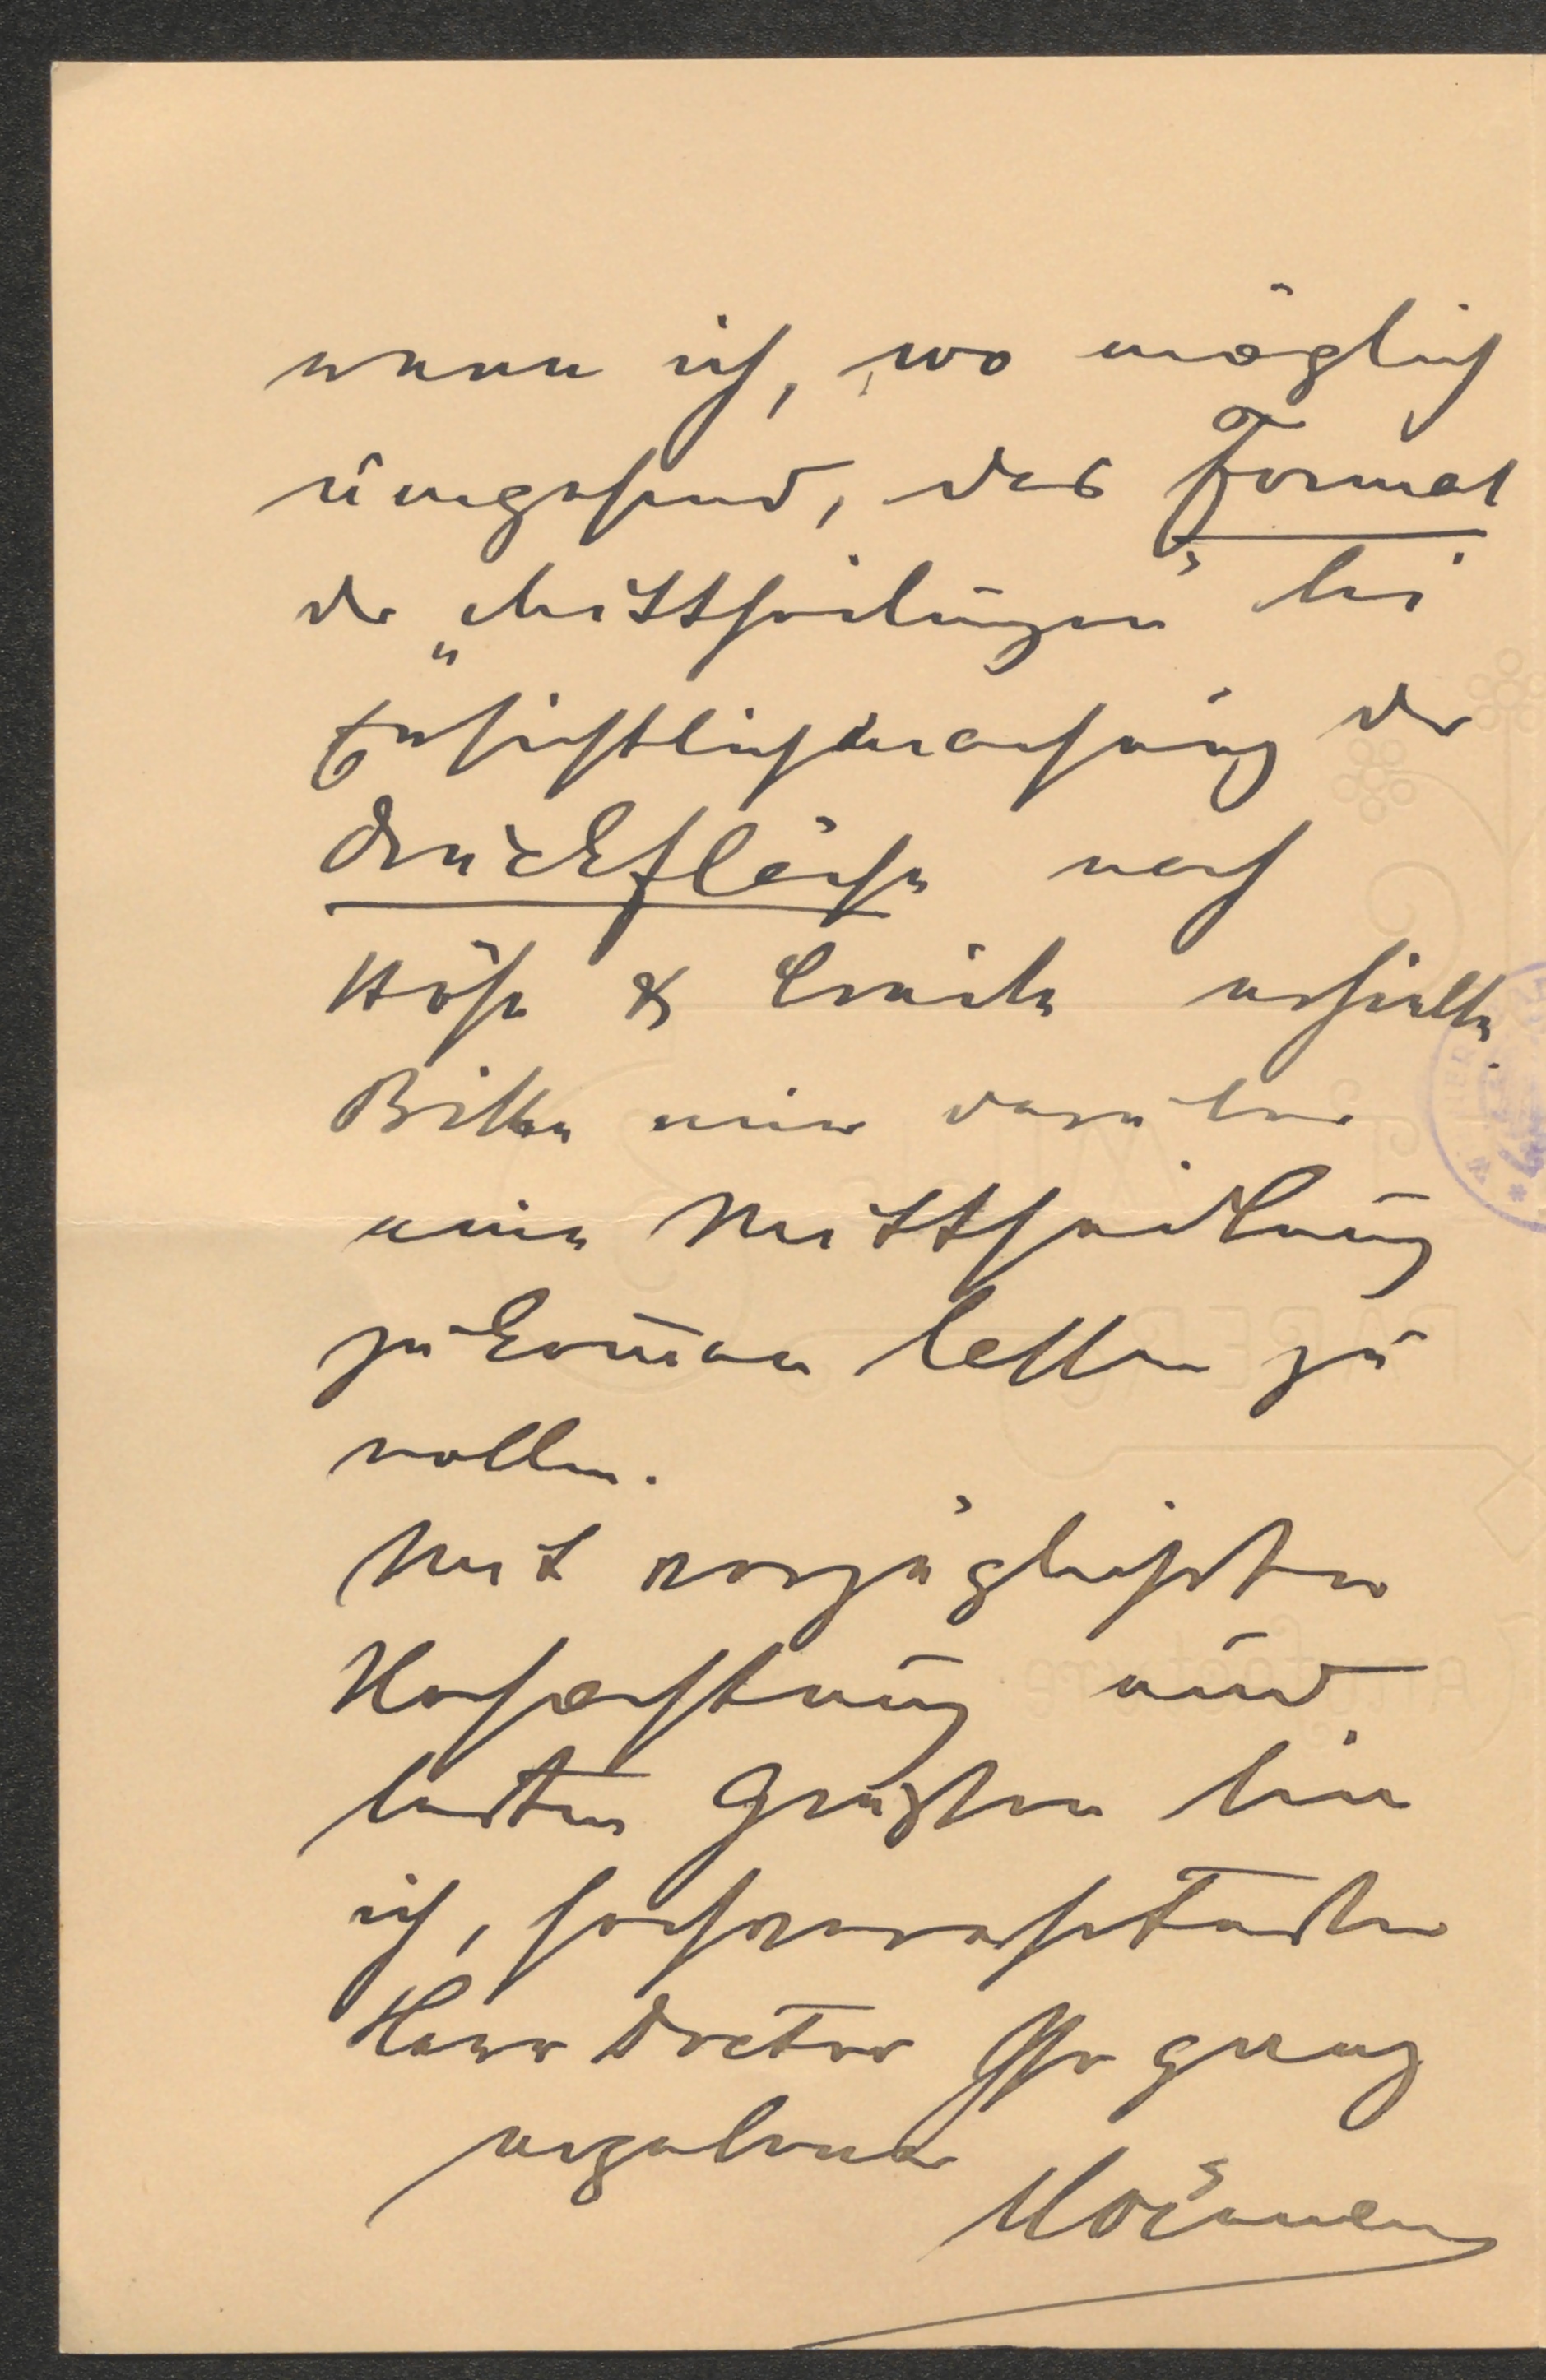 wenn ich, wo möglich
umgehend, das Format
der „Mittheilungen" bei
Ersichtlichmachung der
Druckfläche nach
Höhe & Breite erhielte.
Bitte mir darüber
eine Mittheilung
zukom̄en lassen zu
wollen.
Mit vorzüglichster
Hochachtung und
besten Grüßen bin
ich, hochverehrtester
Herr Doctor Ihr ganz
ergebener